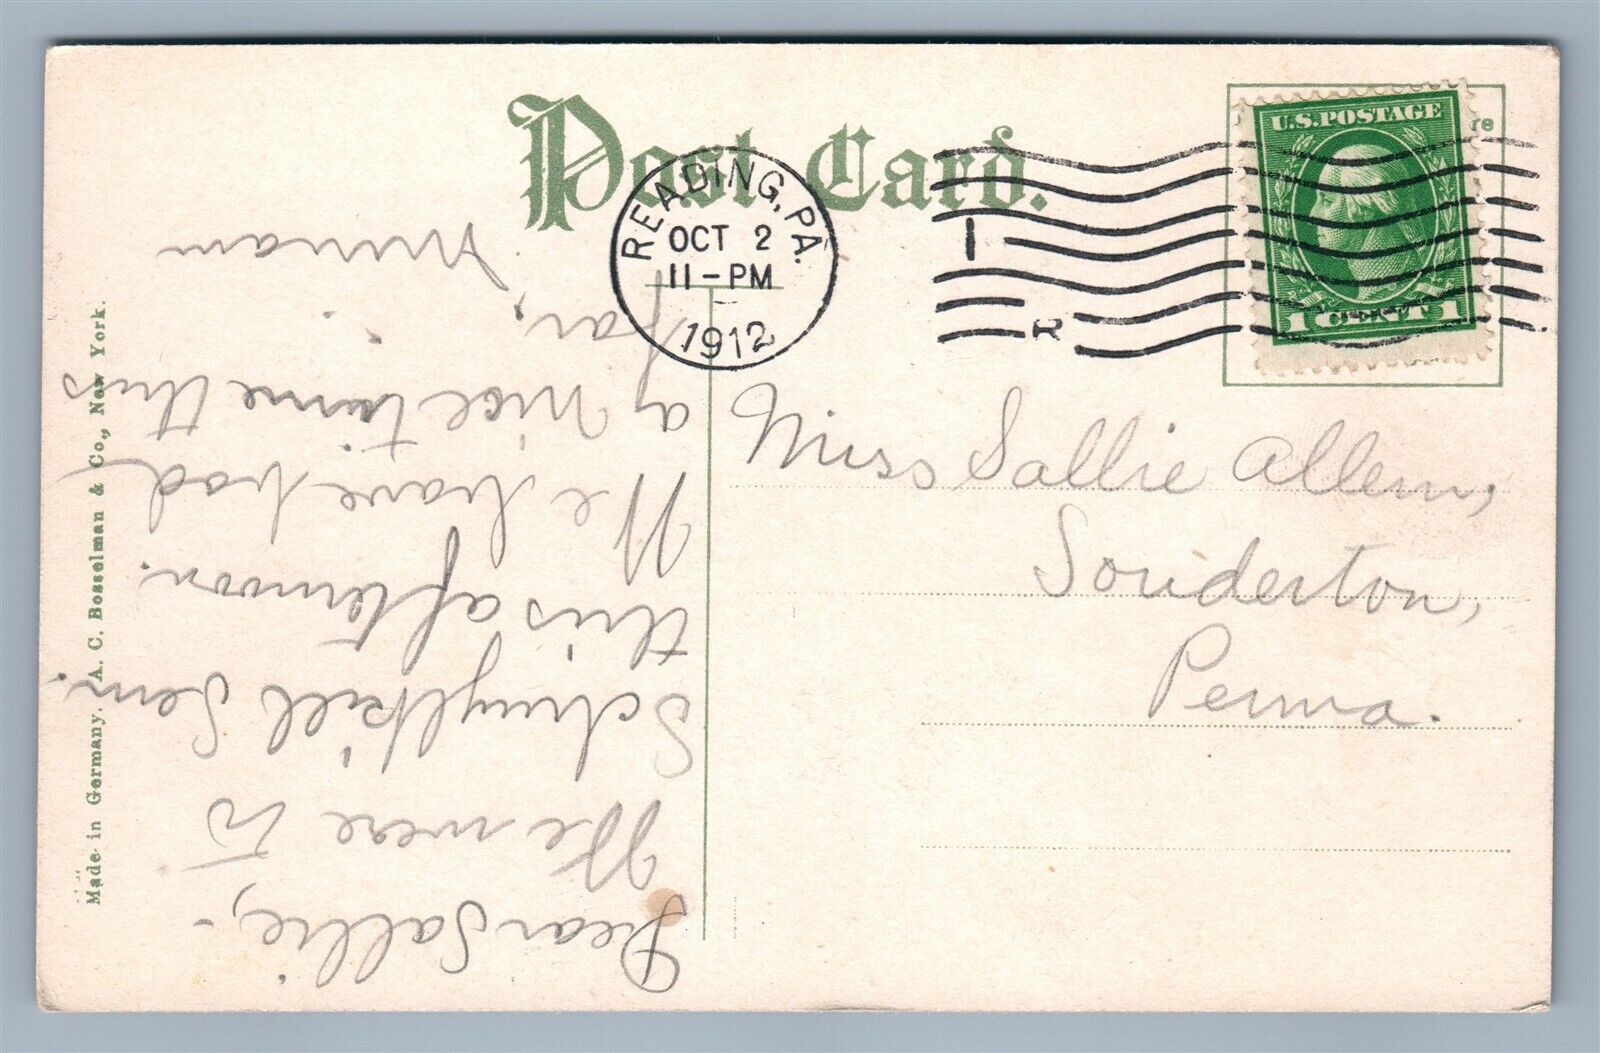 Post Card.
READING, PA.
OCT 2
11-PM
1912
U.S.POSTAGE
1 CENT 1
re
1
R
Miss Sallie Allem,
Souderton,
Penna.
Dear Sallie,-
We were to
Schuylkill Sem.
this afternoon.
We have had
a nice time this
far,
Miriam
Made in Germany. A. C. Bosselman & Co., New York.